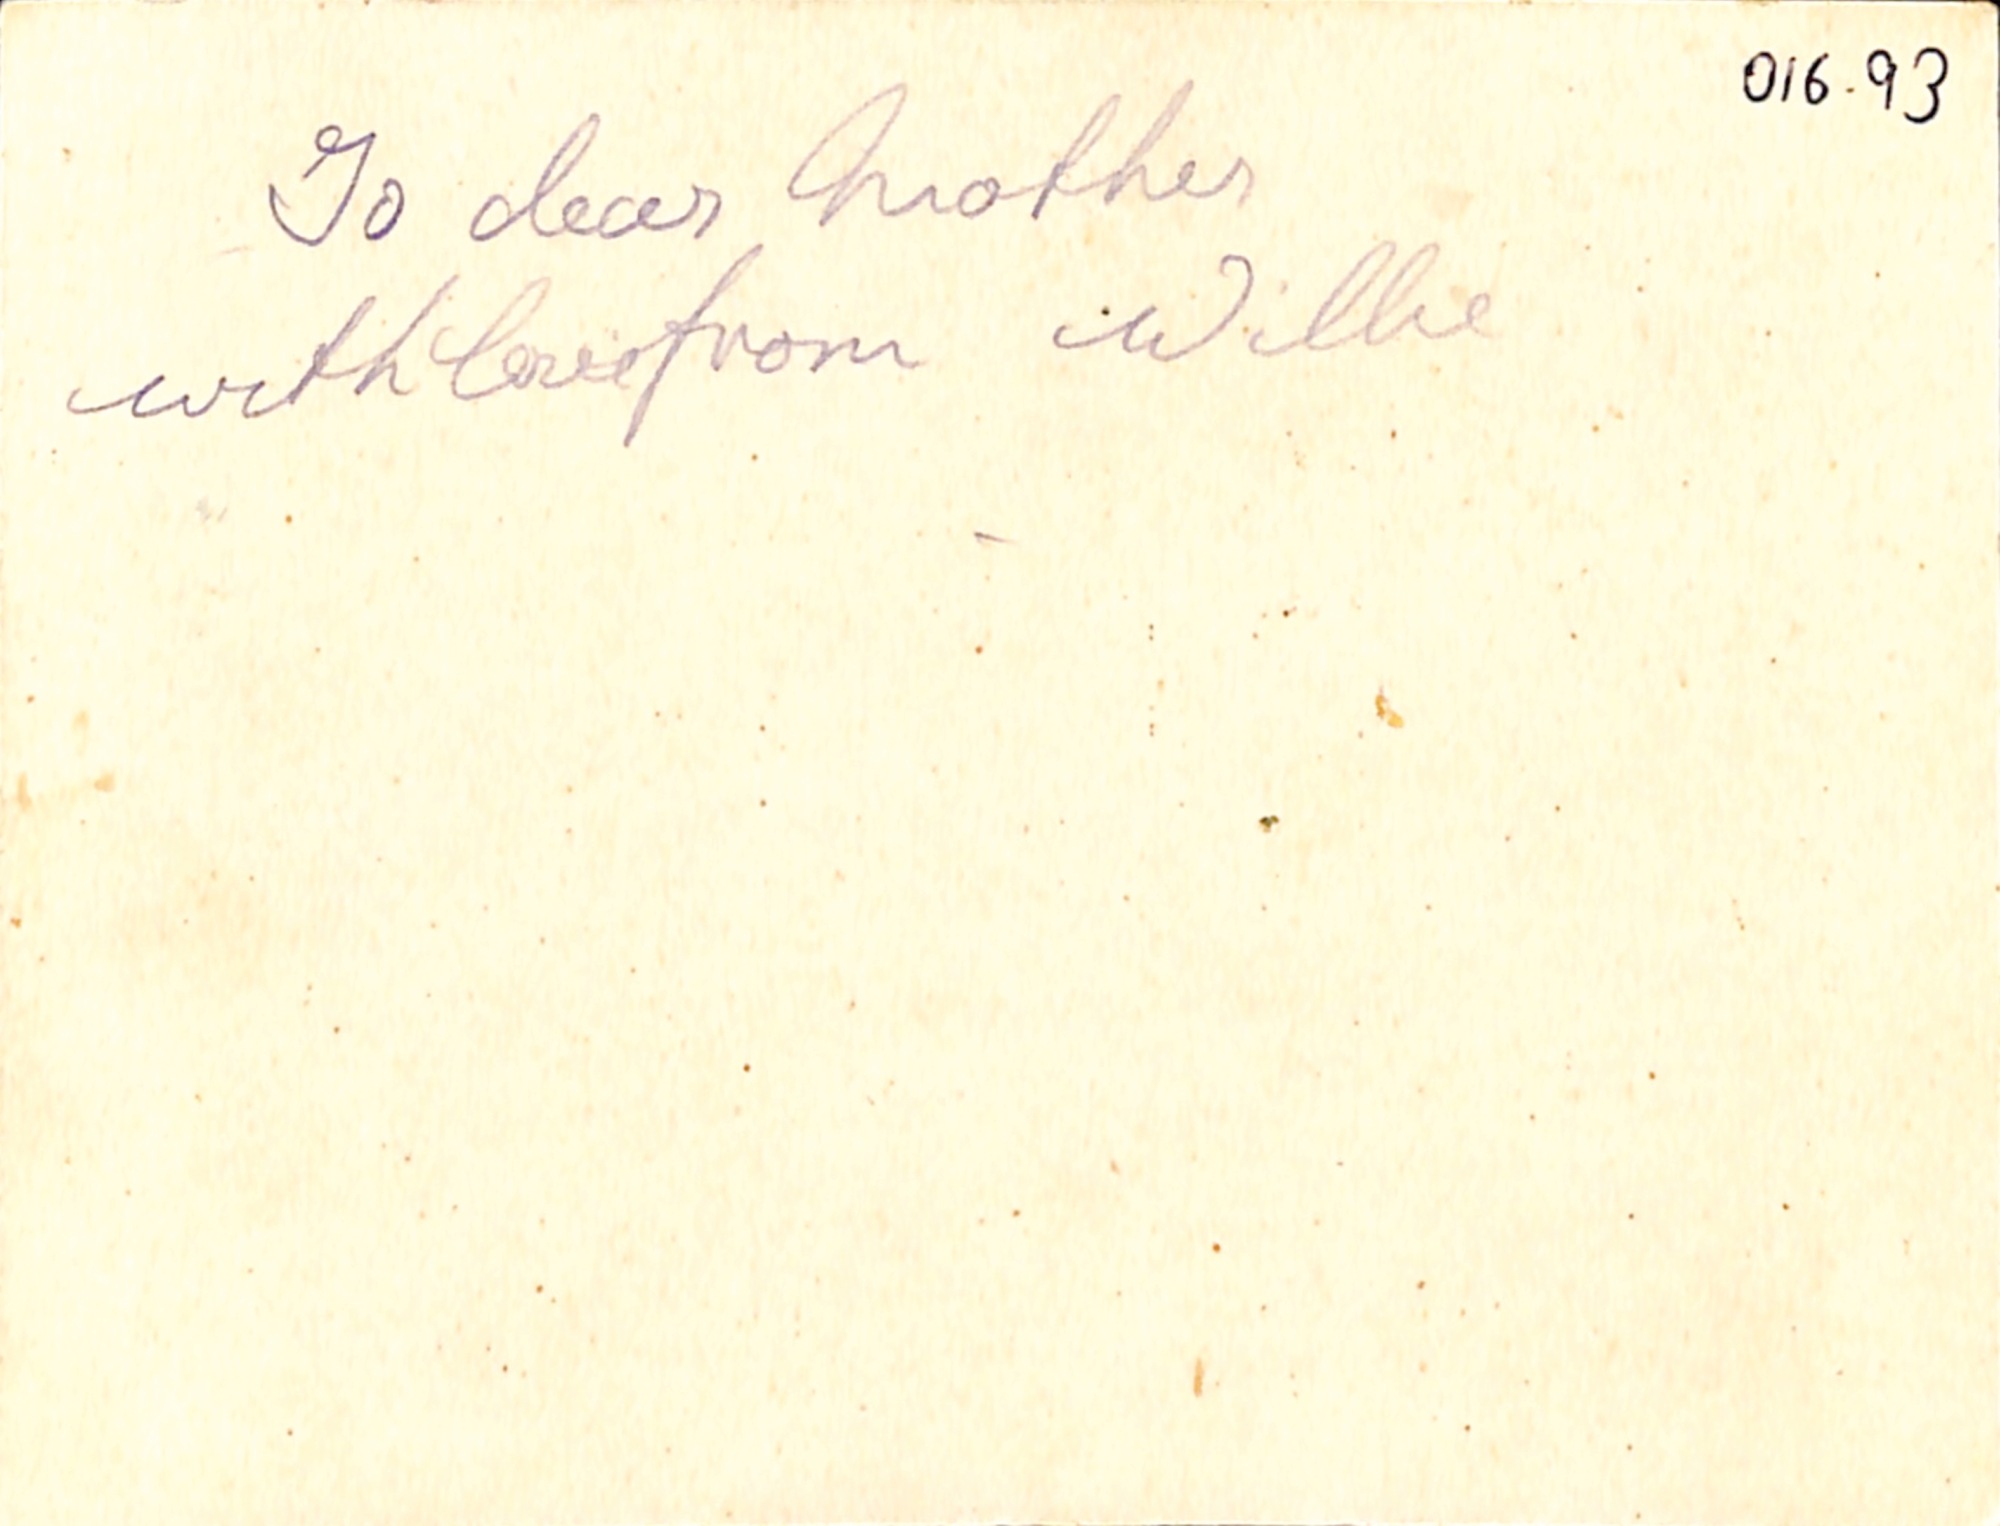 016.93
To dear Mother
with love from Willie